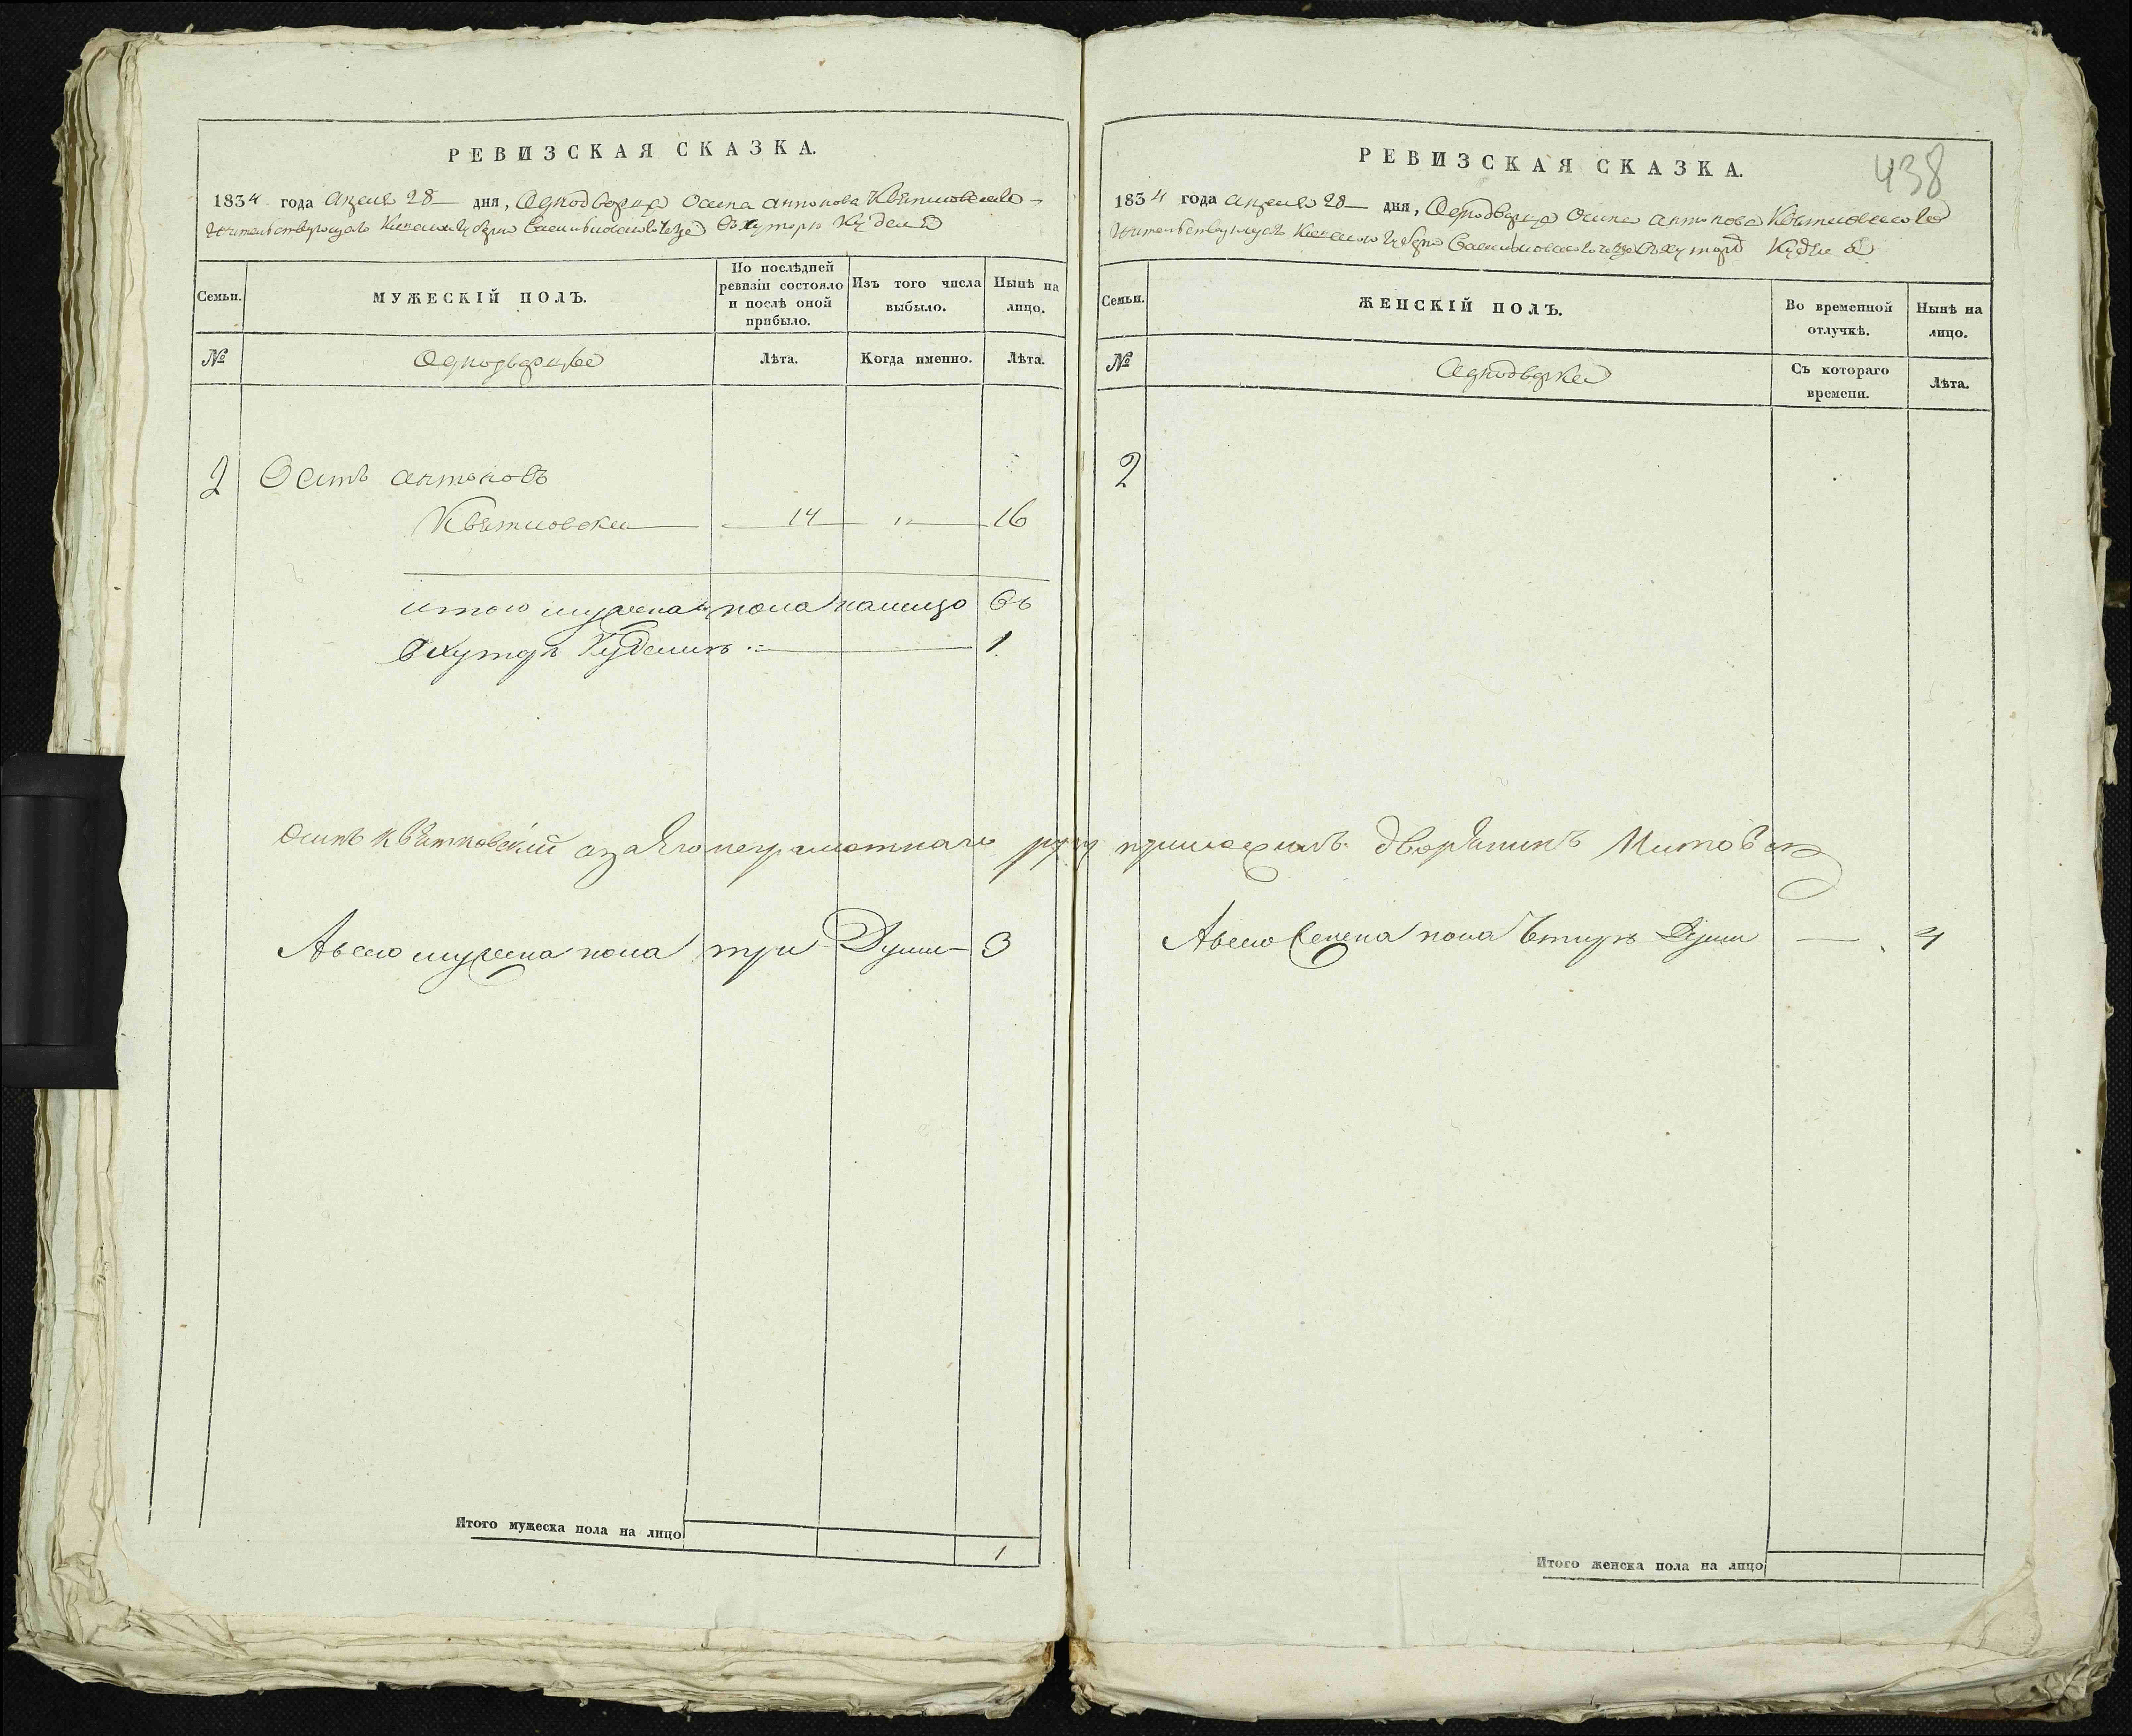 РЕВИЗСКАЯ СКАЗКА.
1834 года Апреля 28 дня, Однодворца Осипа Антонова Квятковскаго
жительствующаго Киевской Губернiи Васильковского Уезда в хуторе
Семьи.
МУЖЕСКІЙ ПОЛЪ.
По послѣдней ревизіи состояло и послѣ оной прибыло.
Изъ того числа выбыло.
Нынѣ на лицо.
№
Однодворцы
Лѣта.
Когда именно.
Лѣта.
2 Осипъ Антоновъ
Квятковски 14 " 16
итого мужеска пола налицо въ
в хуторе 1
Осипъ Квятковскій а за его неграмотнаго руку приложилъ дворянинъ
А всего мужеска пола три Души 3
Итого мужеска пола на лицо
1
438
РЕВИЗСКАЯ СКАЗКА.
1834 года Апреля 28 дня, Однодворца Осипа Антонова Квятковскаго
жительствующаго Киевской Губернiи Васильковского Уезда в хуторе
Семьи.
ЖЕНСКІЙ ПОЛЪ.
Во временной отлучкѣ.
Нынѣ на лицо.
№
Однодворки
Съ котораго времени.
Лѣта.
2
А всего женска пола четыре Души 4
Итого женска пола на лицо